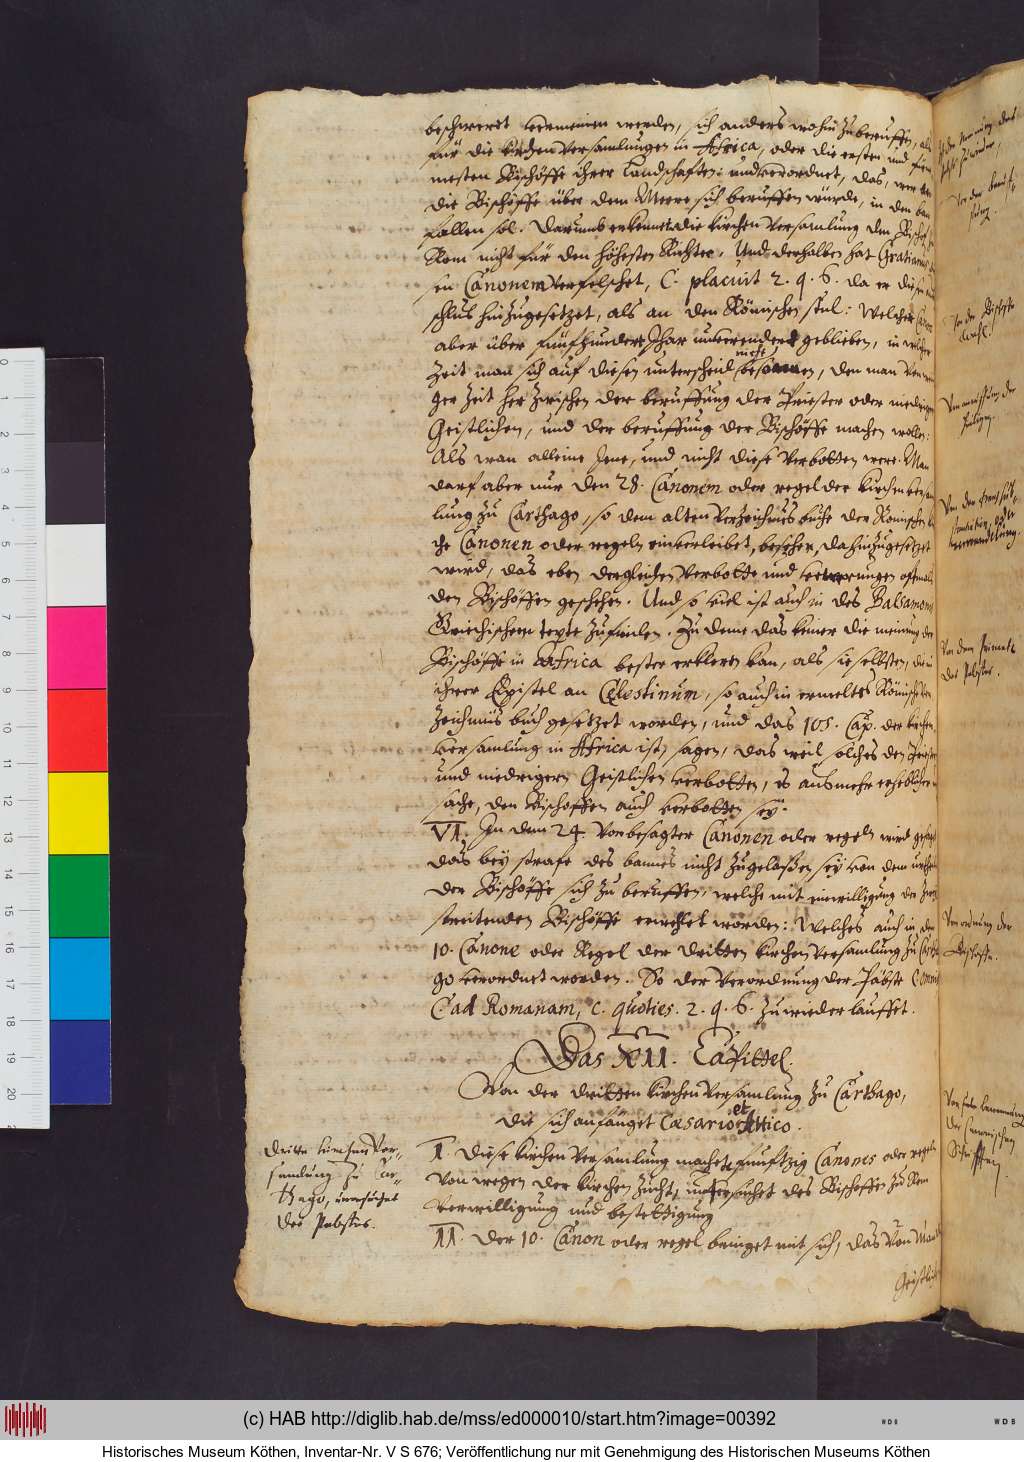 beschweret vermeinen werden, sich anders wohin zu beruffen, als
für die kirchen versamlungen in Africa, oder die ersten und für
nesten Bischöffe ihrer Landschafften: und verordnet, das, wer
die Bischöffe über dem Meere sich beruffen würde, in den ban
fallen sol. Darumb erkennet die kirchen versamlung den Bischof
Rom nicht für den höhesten Richter. Und derhalben hat Gratianus
sen Canonem verfelschet, C. placuit 2. q. 6. da er diesen
schlus hinzugesetzet, als an den Römischen stul: Welcher
aber über fünfhundert Jhar unverendert geblieben, in welcher
Zeit man sich auf diesen unterscheid nicht besonnen, den man von
ger Zeit her zwischen der beruffung der Priester oder niedrigen
Geistlichen, und der beruffung der Bischöffe machen wollen:
Als wan alleine jene, und nicht diese verbotten were. Man
darf aber nur den 28. Canonem oder regel der kirchen versam
lung zu Carthago, so dem alten verzeichnüs buche der Römischen
che Canonen oder regeln einverleibet, besehen, da hinzugesetzet
wird, das eben dergleichen verbotte und oftmals
den Bischöffen geschehen. Und so viel ist auch in des Balsamons
Griechischem texte zufinden. Zu deme das keiner die meinung der
Bischöffe in Africa besser erkleren kan, als sie selbsten, die in
ihrer Epistel an Celestinum, so auch in ermeltes Römische ver
zeichnüs buch gesetzet worden, und das 105. Cap. der kirchen
versamlung in Africa ist, sagen, das weil solches den Priestern
und niedrigern Geistlichen verbotten, es aus mehr erheblicher
sache, den Bischoffen auch verbotten sey.
VI. In dem 24. von besagter Canonen oder regeln wird gesagt
das bey strafe des bannes nicht zugelaßen sey von dem urtheil
der Bischöffe sich zu beruffen, welche mit einwilligung der zwey
streitenden Bischöffe erwehlet worden: Welches auch in der
10. Canone oder Regel der dritten kirchen versamlung zu Cartha
go verordnet worden. So der verordnung der Päbste
C. ad Romanam, c. quoties. 2. q. 6. zu wieder lauffet.
Das XII. Capittel.
Von der dritten kirchen versamlung zu Carthago,
die sich anfänget Cæsario et Attico.
I. Diese kirchen versamlung machet funftzig Canones oder regeln
von wegen der kirchen zucht, unersuchet des Bischoffs zu Rom
verwilligung und bestettigung
II. Der 10. Canon oder regel bringet mit sich, das von
Geistlich
Dritte kirchen ver-
samlung zu Car-
thago, unersuchet
des Pabstes.
Von der
Bischöffe
Von dem Primat
des Pabstes.
Von ordnung der
(c) HAB http://diglib.hab.de/mss/ed000010/start.htm?image=00392
Historisches Museum Köthen, Inventar-Nr. V S 676; Veröffentlichung nur mit Genehmigung des Historischen Museums Köthen
0
1
2
3
4
5
6
7
8
9
10
11
12
13
14
15
16
17
18
19
20